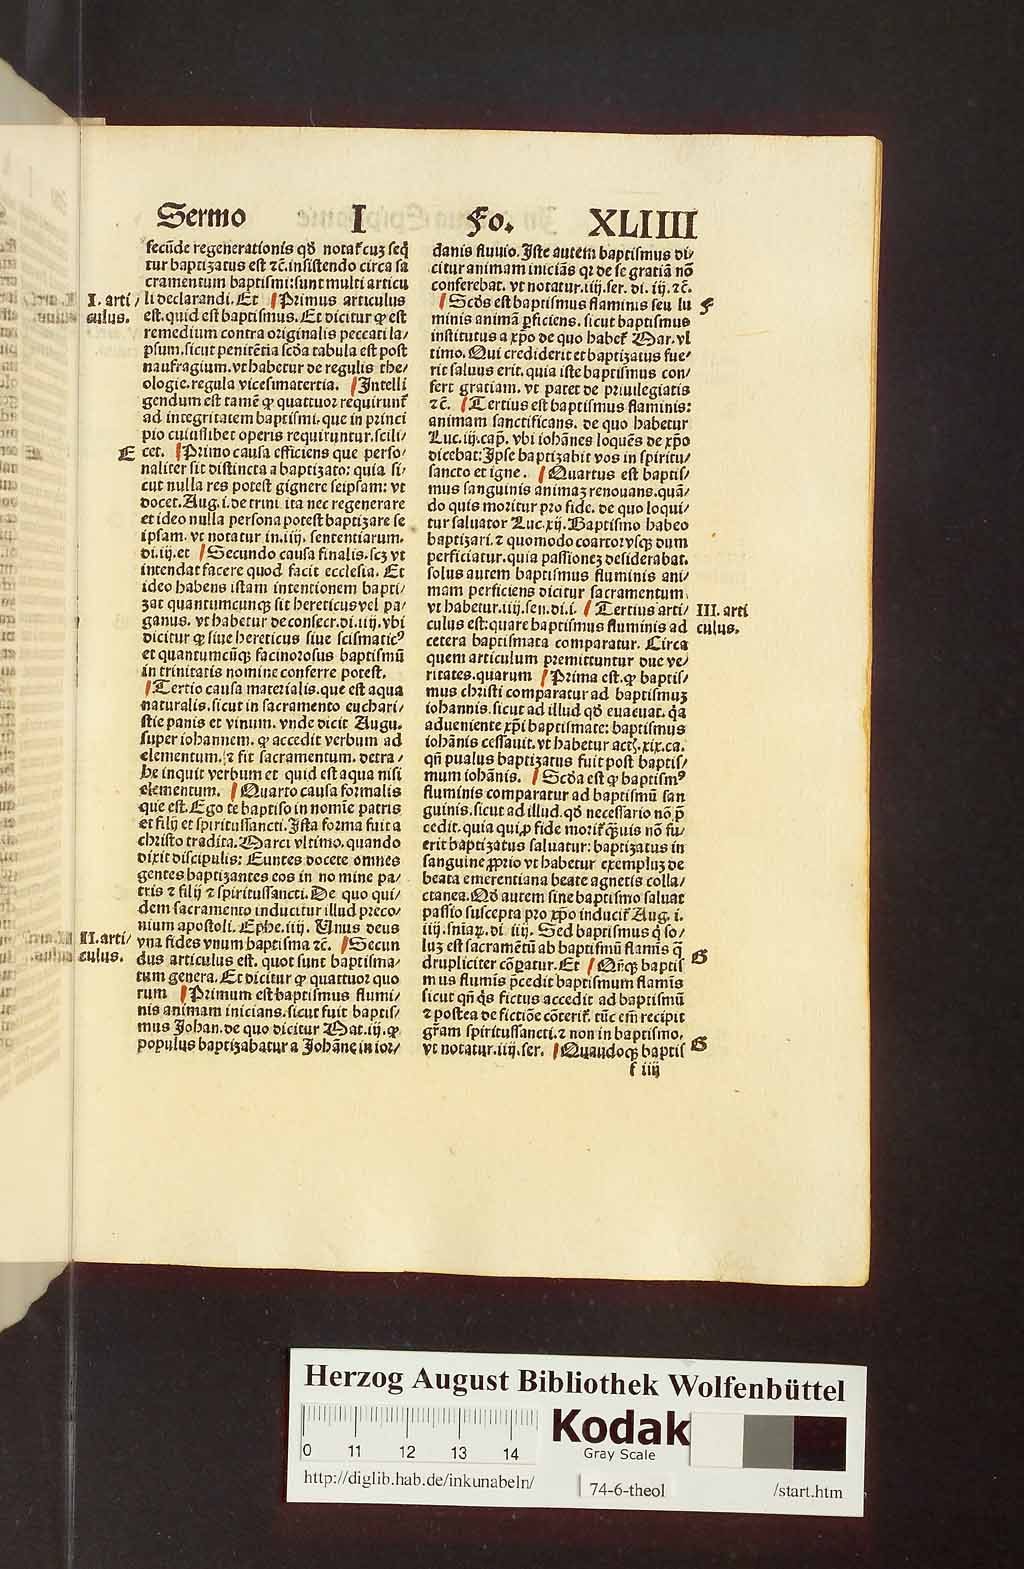 Sermo I Fo. XLIIII
secũde regenerationis qđ notať cuȝ seq̃
tur baptizatus est ⁊c̃. insistendo circa sa
cramentum baptismi: sunt multi articu
I. arti/
culus.
li declarandi. Et Primus articulus
est. quid est baptismus. Et dicitur ꝙ est
remedium contra originalis peccati la/
psum. sicut penitẽtia scđa tabula est post
naufragium. vt habetur de regulis the/
ologie. regula vicesimatertia. Intelli
gendum est tamẽ ꝙ quattuor requirunť
ad integritatem baptismi. que in princi
pio cuiuslibet operis requiruntur. scili/
E
cet. Primo causa efficiens que perso/
naliter sit distincta a baptizato: quia si/
cut nulla res potest gignere seipsam: vt
docet. Aug. i. de trini. ita nec regenerare
et ideo nulla persona potest baptizare se
ipsam. vt notatur in. iiij. sententiarum.
di. iij. et Secundo causa finalis. scȝ vt
intendat facere quod facit ecclesia. Et
ideo habens istam intentionem bapti/
zat quantumcunqȝ sit hereticus vel pa/
ganus. vt habetur de consecr. di. iiij. vbi
dicitur ꝙ siue hereticus siue scismaticꝰ
et quantumcũqȝ facinorosus baptismũ
in trinitatis nomine conferre potest.
Tertio causa materialis. que est aqua
naturalis. sicut in sacramento euchari/
stie panis et vinum. vnde dicit Augu.
super iohannem. ꝙ accedit verbum ad
elementum. ⁊ fit sacramentum. detra/
he inquit verbum et quid est aqua nisi
elementum. Quarto causa formalis
que est. Ego te baptiso in nomĩe patris
et filij et spiritussancti. Ista forma fuit a
christo tradita. Marci vltimo. quando
dixit discipulis: Euntes docete omnes
gentes baptizantes eos in no mine pa/
tris ⁊ filij ⁊ spiritussancti. De quo qui/
dem sacramento inducitur illud preco/
nium apostoli. Ephe. iiij. Unus deus
II. arti/
culus.
vna fides vnum baptisma ⁊c̃. Secun
dus articulus est. quot sunt baptisma/
tum genera. Et dicitur ꝙ quattuor quo
rum Primum est baptismus flumi/
nis animam inicians. sicut fuit baptis/
mus Johan. de quo dicitur Mat. iij. ꝙ
populus baptizabatur a Johãne in ior/
danis fluuio. Iste autem baptismus di/
citur animam iniciãs qꝛ de se gratiã nõ
conferebat. vt notatur. iiij. ser. di. iij. ⁊c̃.
Scđs est baptismus flaminis seu lu
f
minis animã ꝑficiens. sicut baptismus
institutus a xp̃o de quo habeť Mar. vl
timo. Qui crediderit et baptizatus fue/
rit saluus erit. quia iste baptismus con/
fert gratiam. vt patet de priuilegiatis
⁊c̃. Tertius est baptismus flaminis:
animam sanctificans. de quo habetur
Luc. iij. cap̃. vbi iohãnes loquẽs de xp̃o
dicebat: Ipse baptizabit vos in spiritu/
sancto et igne. Quartus est baptis/
mus sanguinis animaȝ renouans. quã/
do quis moritur pro fide. de quo loqui/
tur saluator Luc. xij. Baptismo habeo
baptizari. ⁊ quomodo coartor vsqȝ dum
perficiatur. quia passioneȝ desiderabat.
solus autem baptismus fluminis ani/
mam perficiens dicitur sacramentum
vt habetur. iiij. sen. di. i. Tertius arti/
III. arti
culus.
culus est: quare baptismus fluminis ad
cetera baptismata comparatur. Circa
quem articulum premittuntur due ve/
ritates. quarum Prima est. ꝙ baptis/
mus christi comparatur ad baptismuȝ
iohannis. sicut ad illud qđ euacuat. q̃a
adueniente xp̃i baptismate: baptismus
iohãnis cessauit. vt habetur act. xix. ca.
qñ pualus baptizatus fuit post baptis/
mum iohãnis. Scđa est ꝙ baptismꝰ
fluminis comparatur ad baptismũ san
guinis. sicut ad illud. qđ necessario nõ p̃
cedit. quia qui ꝓ fide moriť q̃uis nõ fu/
erit baptizatus saluatur: baptizatus in
sanguine ꝓprio vt habetur exempluȝ de
beata emerentiana beate agnetis colla/
ctanea. Qđ autem sine baptismo saluat
passio suscepta pro xp̃o induciť Aug. i.
iiij. sniaꝝ. di. iiij. Sed baptismus q̃ so/
luȝ est sacramẽtũ ab baptismũ flamĩs q̃
G
drupliciter cõꝑatur. Et Qñqȝ baptis
mus flumĩs p̃cedit baptismum flamĩs
sicut qñ q̃s fictus accedit ad baptismũ
⁊ postea de fictiõe cõteriť. tũc em̃ recipit
gr̃am spiritussancti. ⁊ non in baptismo.
G
vt notatur. iiij. ser. Quandoqȝ baptis
f iiij
Herzog August Bibliothek Wolfenbüttel
0 11 12 13 14
Kodak
Gray Scale
http://diglib.hab.de/inkunabeln/
74-6-theol
/start.htm